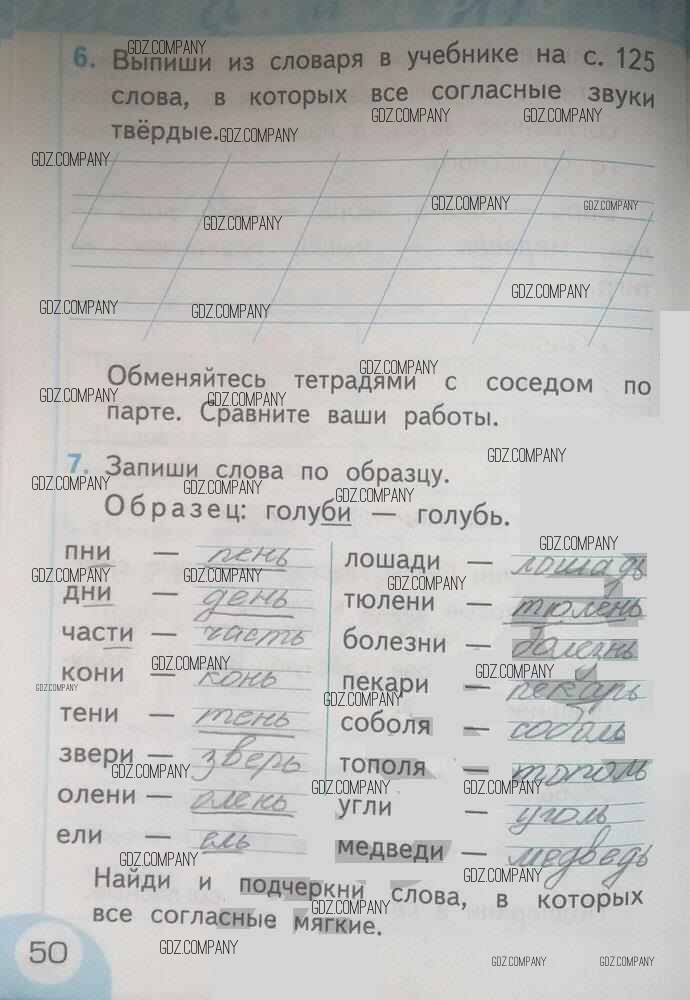 6. Выпиши из словаря в учебнике на с. 125
слова, в которых все согласные звуки
твёрдые.
Обменяйтесь тетрадями с соседом по
парте. Сравните ваши работы.
7. Запиши слова по образцу.
Образец: голуби — голубь.
пни — пень
дни — день
части — часть
кони — конь
тени — тень
звери — зверь
олени — олень
ели — ель
лошади — лошадь
тюлени — тюлень
болезни — болезнь
пекари — пекарь
соболя — соболь
тополя — тополь
угли — уголь
медведи — медведь
Найди и подчеркни слова, в которых
все согласные мягкие.
50
GDZ.COMPANY